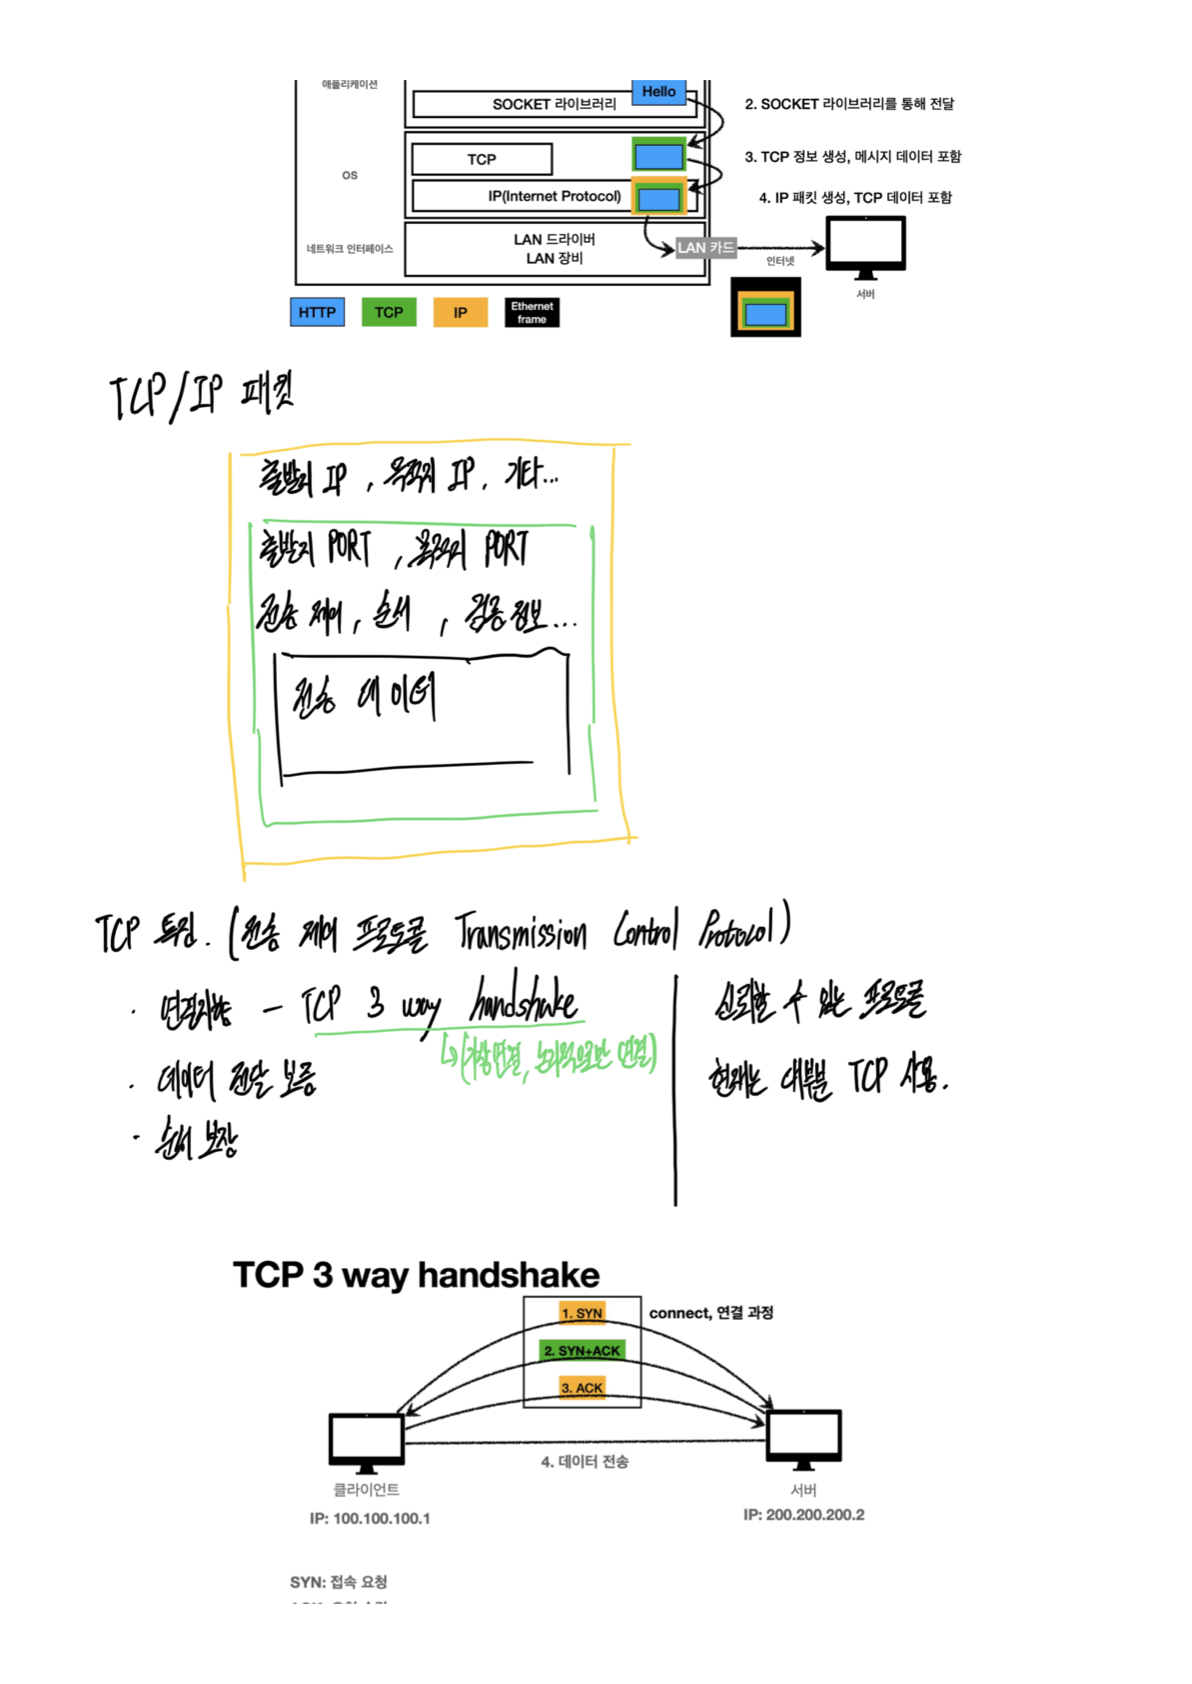 애플리케이션
Hello
SOCKET 라이브러리
2. SOCKET 라이브러리를 통해 전달
TCP
3. TCP 정보 생성, 메시지 데이터 포함
OS
IP(Internet Protocol)
4. IP 패킷 생성, TCP 데이터 포함
네트워크 인터페이스
LAN 드라이버
LAN 장비
LAN 카드
인터넷
서버
HTTP
TCP
IP
Ethernet
frame
TCP/IP 패킷
출발지 IP, 목적지 IP, 기타...
출발지 PORT, 목적지 PORT
전송 제어, 순서, 검증 정보...
전송 데이터
TCP 특징. (전송 제어 프로토콜 Transmission Control Protocol)
· 연결지향 - TCP 3 way handshake
↳(가상연결, 논리적으로만 연결)
· 데이터 전달 보증
· 순서 보장
신뢰할 수 있는 프로토콜
현재는 대부분 TCP 사용.
TCP 3 way handshake
1. SYN
connect, 연결 과정
2. SYN+ACK
3. ACK
4. 데이터 전송
클라이언트
서버
IP: 100.100.100.1
IP: 200.200.200.2
SYN: 접속 요청